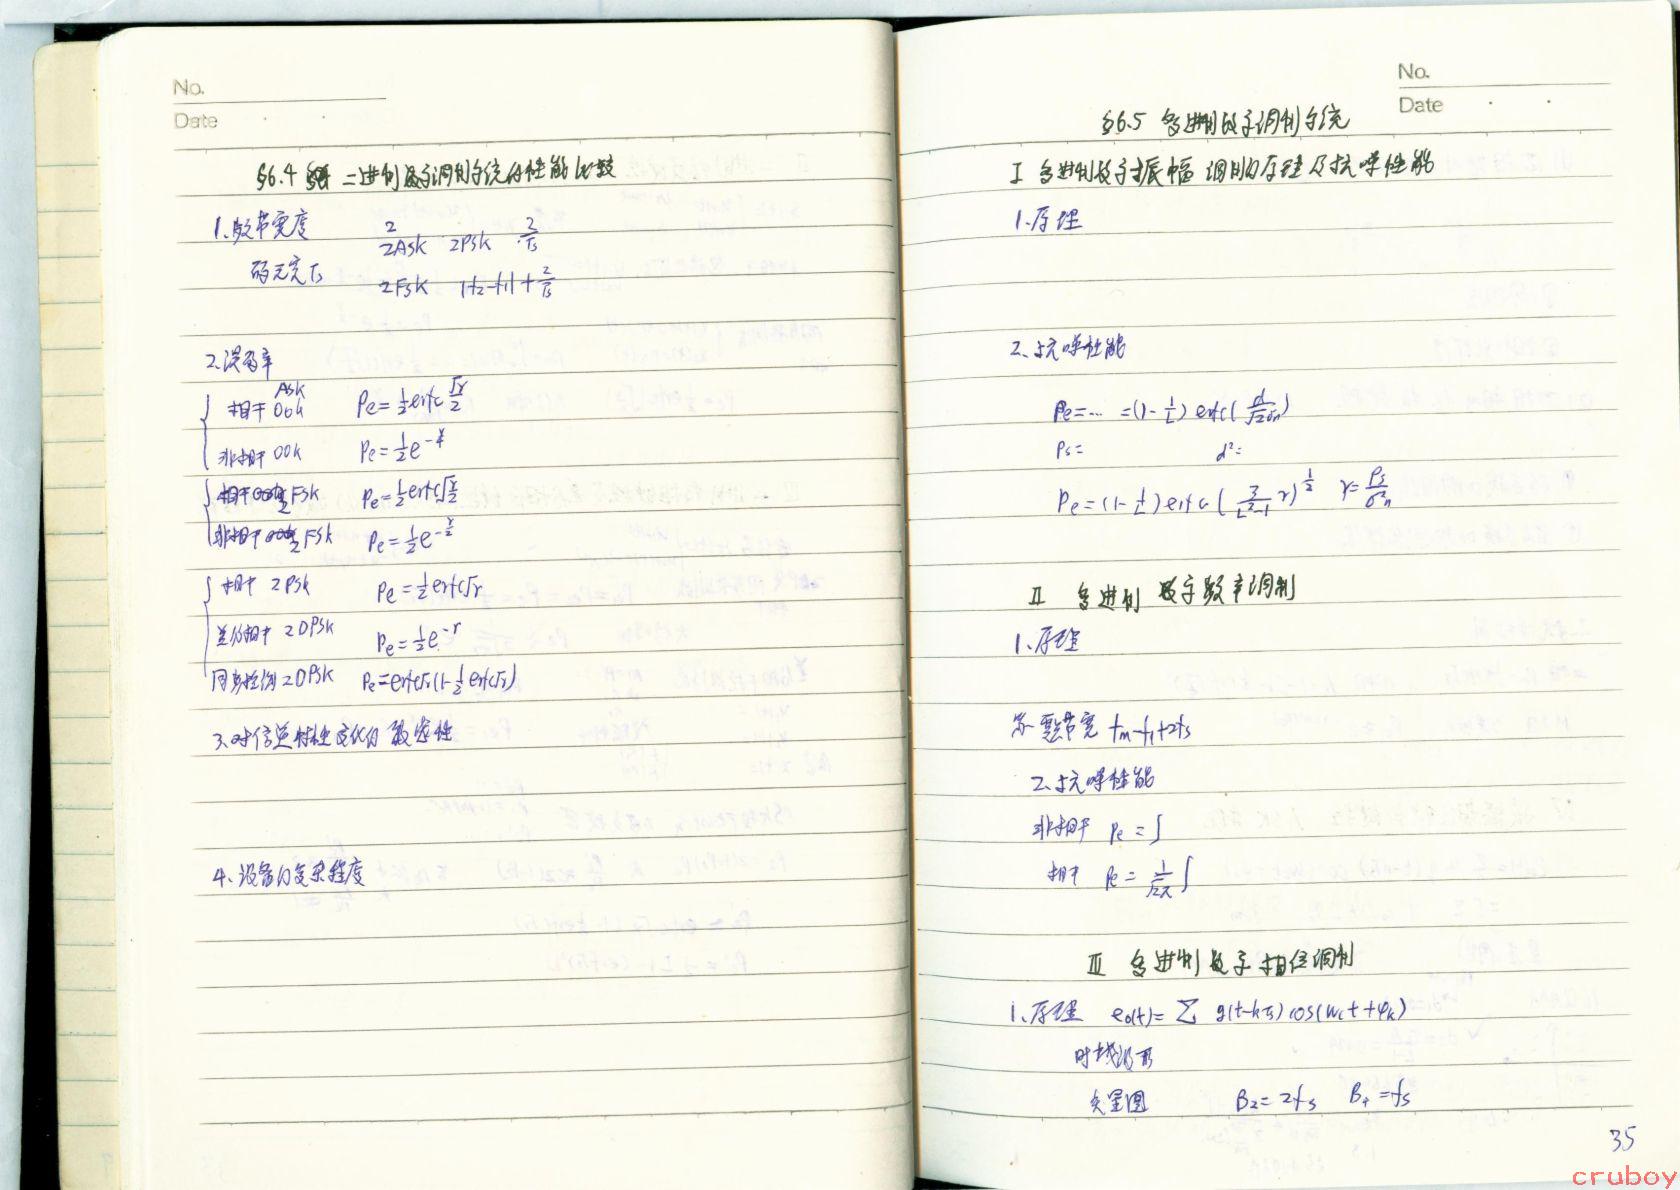 No.
Date
§6.4 二进制数字调制系统的性能比较
1、频带宽度 2/2ASK 2PSK 2/Ts
码元宽Ts 2FSK |f₂-f₁|+2/Ts
2、误码率
ASK
相干OOK Pe=½erfc √r/2
非相干OOK Pe=½e^(-r/4)
相干2FSK Pe=½erfc√(r/2)
非相干2FSK Pe=½e^(-r/2)
相干 2PSK Pe=½erfc√r
差分相干 2DPSK Pe=½e^(-r)
同步检测2DPSK Pe=erfc√r(1-½erfc√r)
3、对信道特性变化的敏感性
4、设备的复杂程度
No.
Date
§6.5 多进制数字调制系统
I 多进制数字振幅调制的原理及抗噪性能
1、原理
2、抗噪性能
Pe=… =(1-1/L) erfc(d/√2σn)
Ps= d²=
Pe=(1-1/L) erfc(3/(L²-1) r)^½ r=Ps/σ²n
II 多进制数字频率调制
1、原理
要带宽 fm-f₁+2fs
2、抗噪性能
非相干 Pe=∫
相干 Pe=1/√2π ∫
III 多进制数字相位调制
1、原理 e₀(t)=∑ g(t-kTs)cos(Wct+φk)
时域波形
矢量图 B₂=2fs B₄=fs
35
cruboy